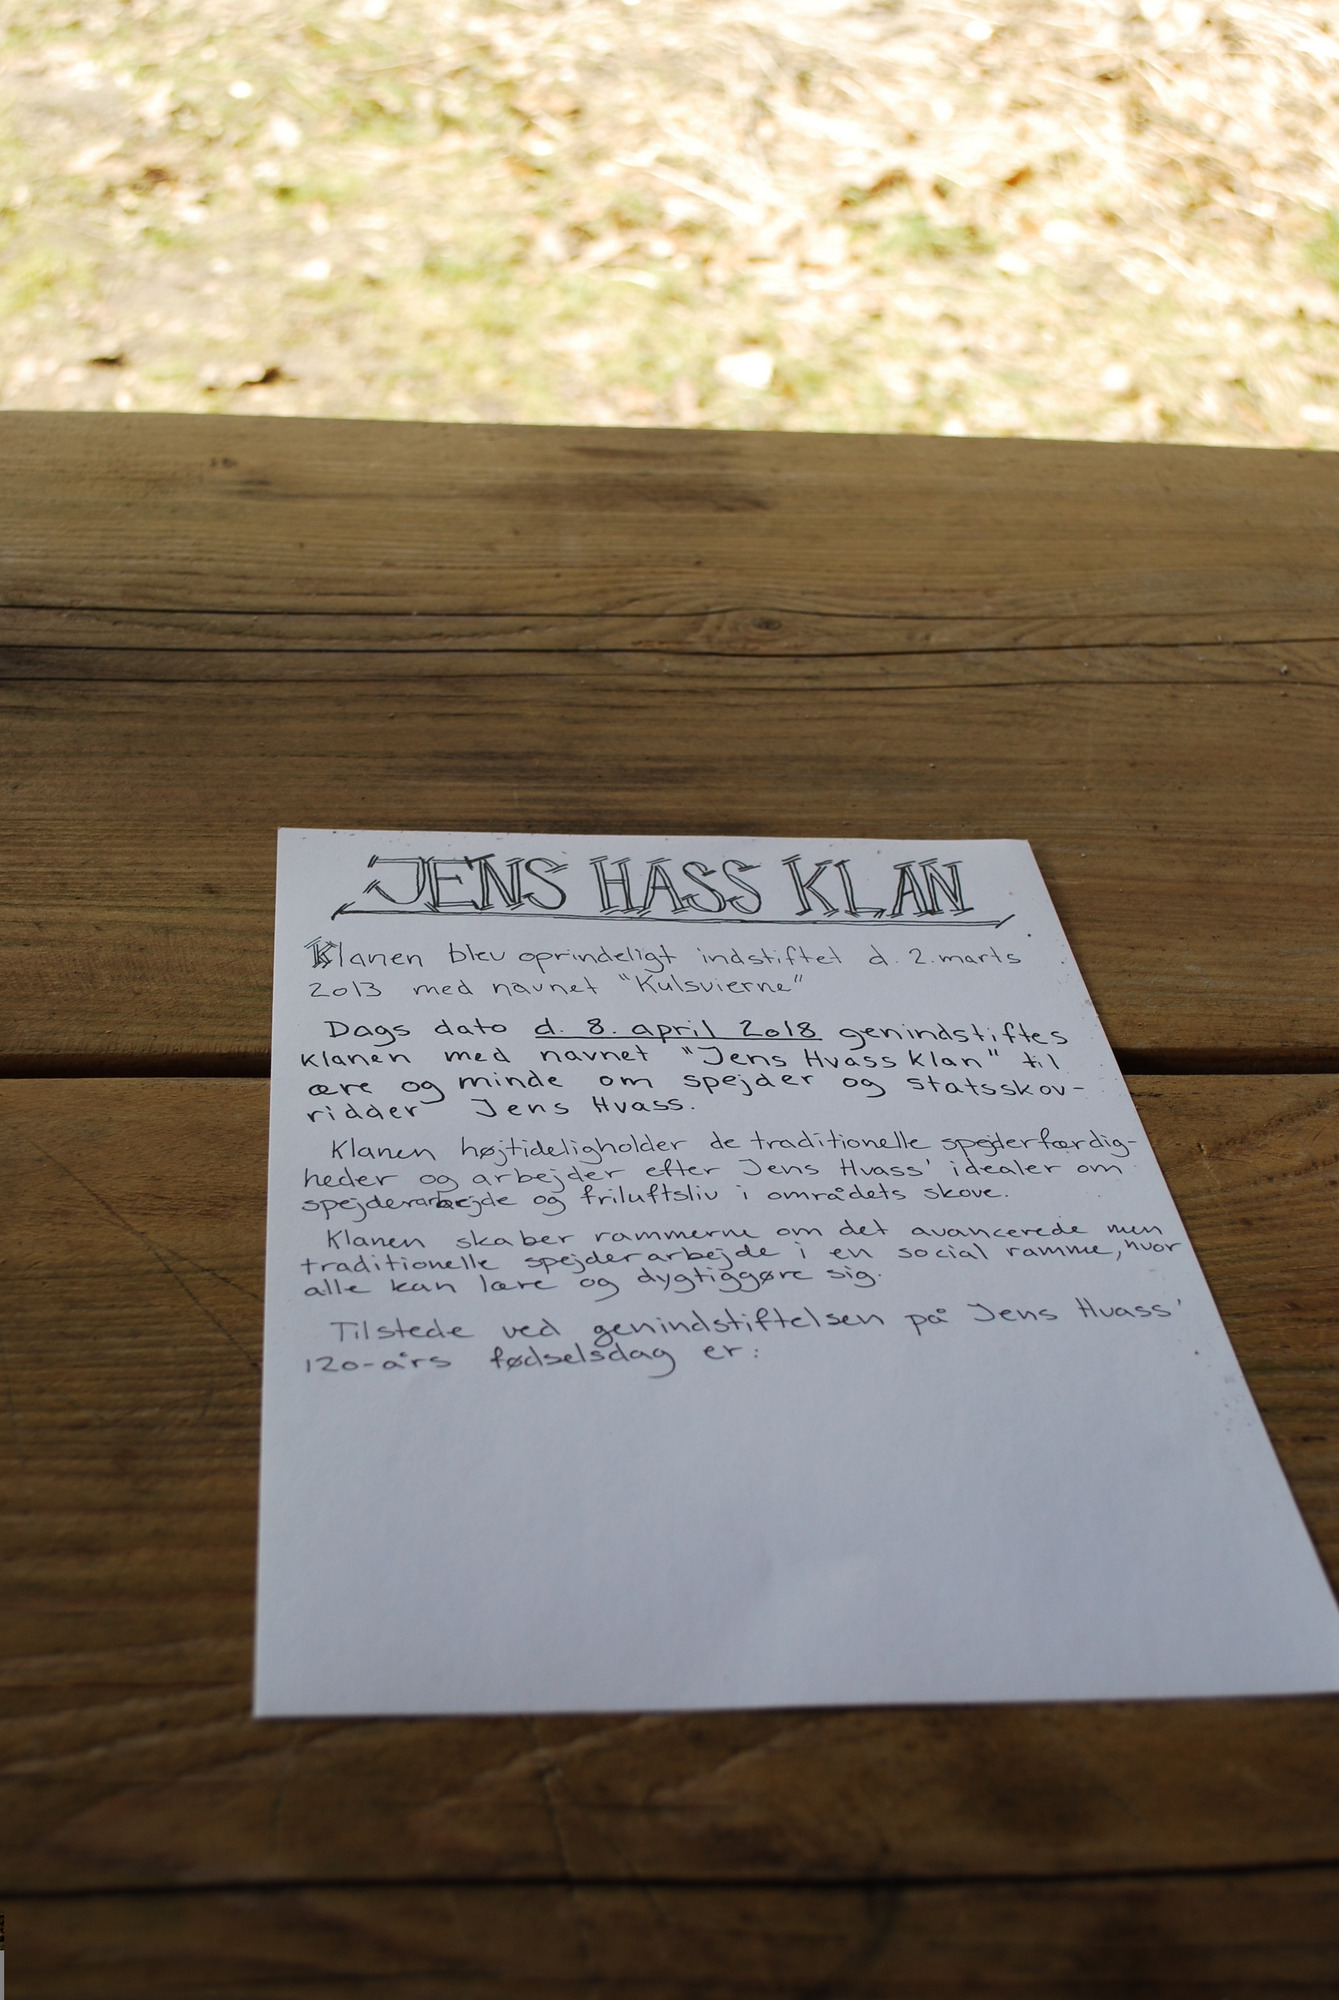 JENS HASS KLAN
Klanen blev oprindeligt indstiftet d. 2. marts
2013 med navnet "Kulsvierne"
Dags dato d. 8. april 2018 genindstiftes
klanen med navnet "Jens Hvass Klan" til
ære og minde om spejder og statsskov-
ridder Jens Hvass.
Klanen højtideligholder de traditionelle spejderfærdig-
heder og arbejder efter Jens Hvass' idealer om
spejderarbejde og friluftsliv i områdets skove.
Klanen skaber rammerne om det avancerede men
traditionelle spejderarbejde i en social ramme, hvor
alle kan lære og dygtiggøre sig.
Tilstede ved genindstiftelsen på Jens Hvass'
120-års fødselsdag er: